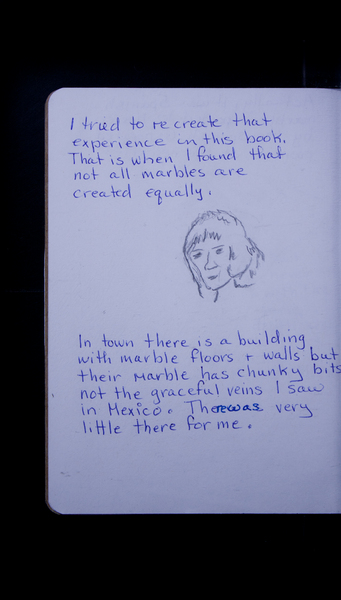 I tried to re create that
experience in this book.
That is when I found that
not all marbles are
created equally.
In town there is a building
with marble floors + walls but
their marble has chunky bits
not the graceful veins I saw
in Mexico. There was very
little there for me.